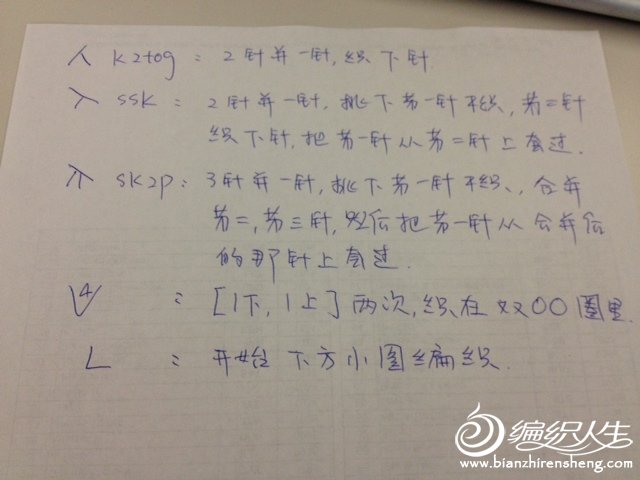 人 k2tog : 2针并一针,织下针
入 ssk : 2针并一针,挑下第一针不织,第二针
织下针,把第一针从第二针上套过.
sk2p: 3针并一针,挑下第一针不织,合并
第二,第三针,然后把第一针从合并后
的那针上套过.
4 V : [1下,1上]两次,织在双OO圈里.
L : 开始下方小图编织.
编织人生
www.bianzhirensheng.com